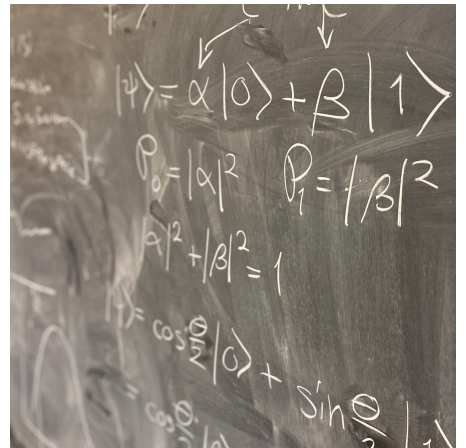 |ψ⟩ = α|0⟩ + β|1⟩
P₀ = |α|² P₁ = |β|²
|α|² + |β|² = 1
|ψ⟩ = cos θ/2 |0⟩ + sin θ/2 |1⟩
= cos θ/2 |0⟩